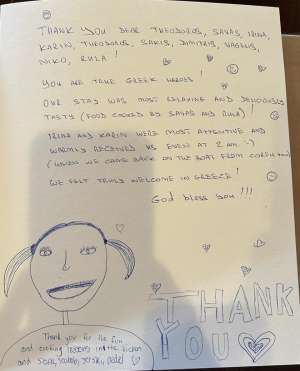 THANK YOU DEAR THEODOROS, SAVAS, IRINA,
KARIN, THEODOROS, SAKIS, DIMITRIS, VAGELIS,
NIKO, RULA!
YOU ARE TRUE GREEK HEROES!
OUR STAY WAS MOST RELAXING AND DELICIOUSLY
TASTY (FOOD COOKED BY SAVAS AND RULA)!
IRINA AND KARIN WERE MOST ATTENTIVE AND
WARMLY RECEIVED US EVEN AT 2 AM :-)
(WHEN WE CAME BACK ON THE BOAT FROM CORFU
WE FELT TRULY WELCOME IN GREECE!
God bless you!!!
Thank you for the fun
and exciting in the kitchen
and
THANK
YOU